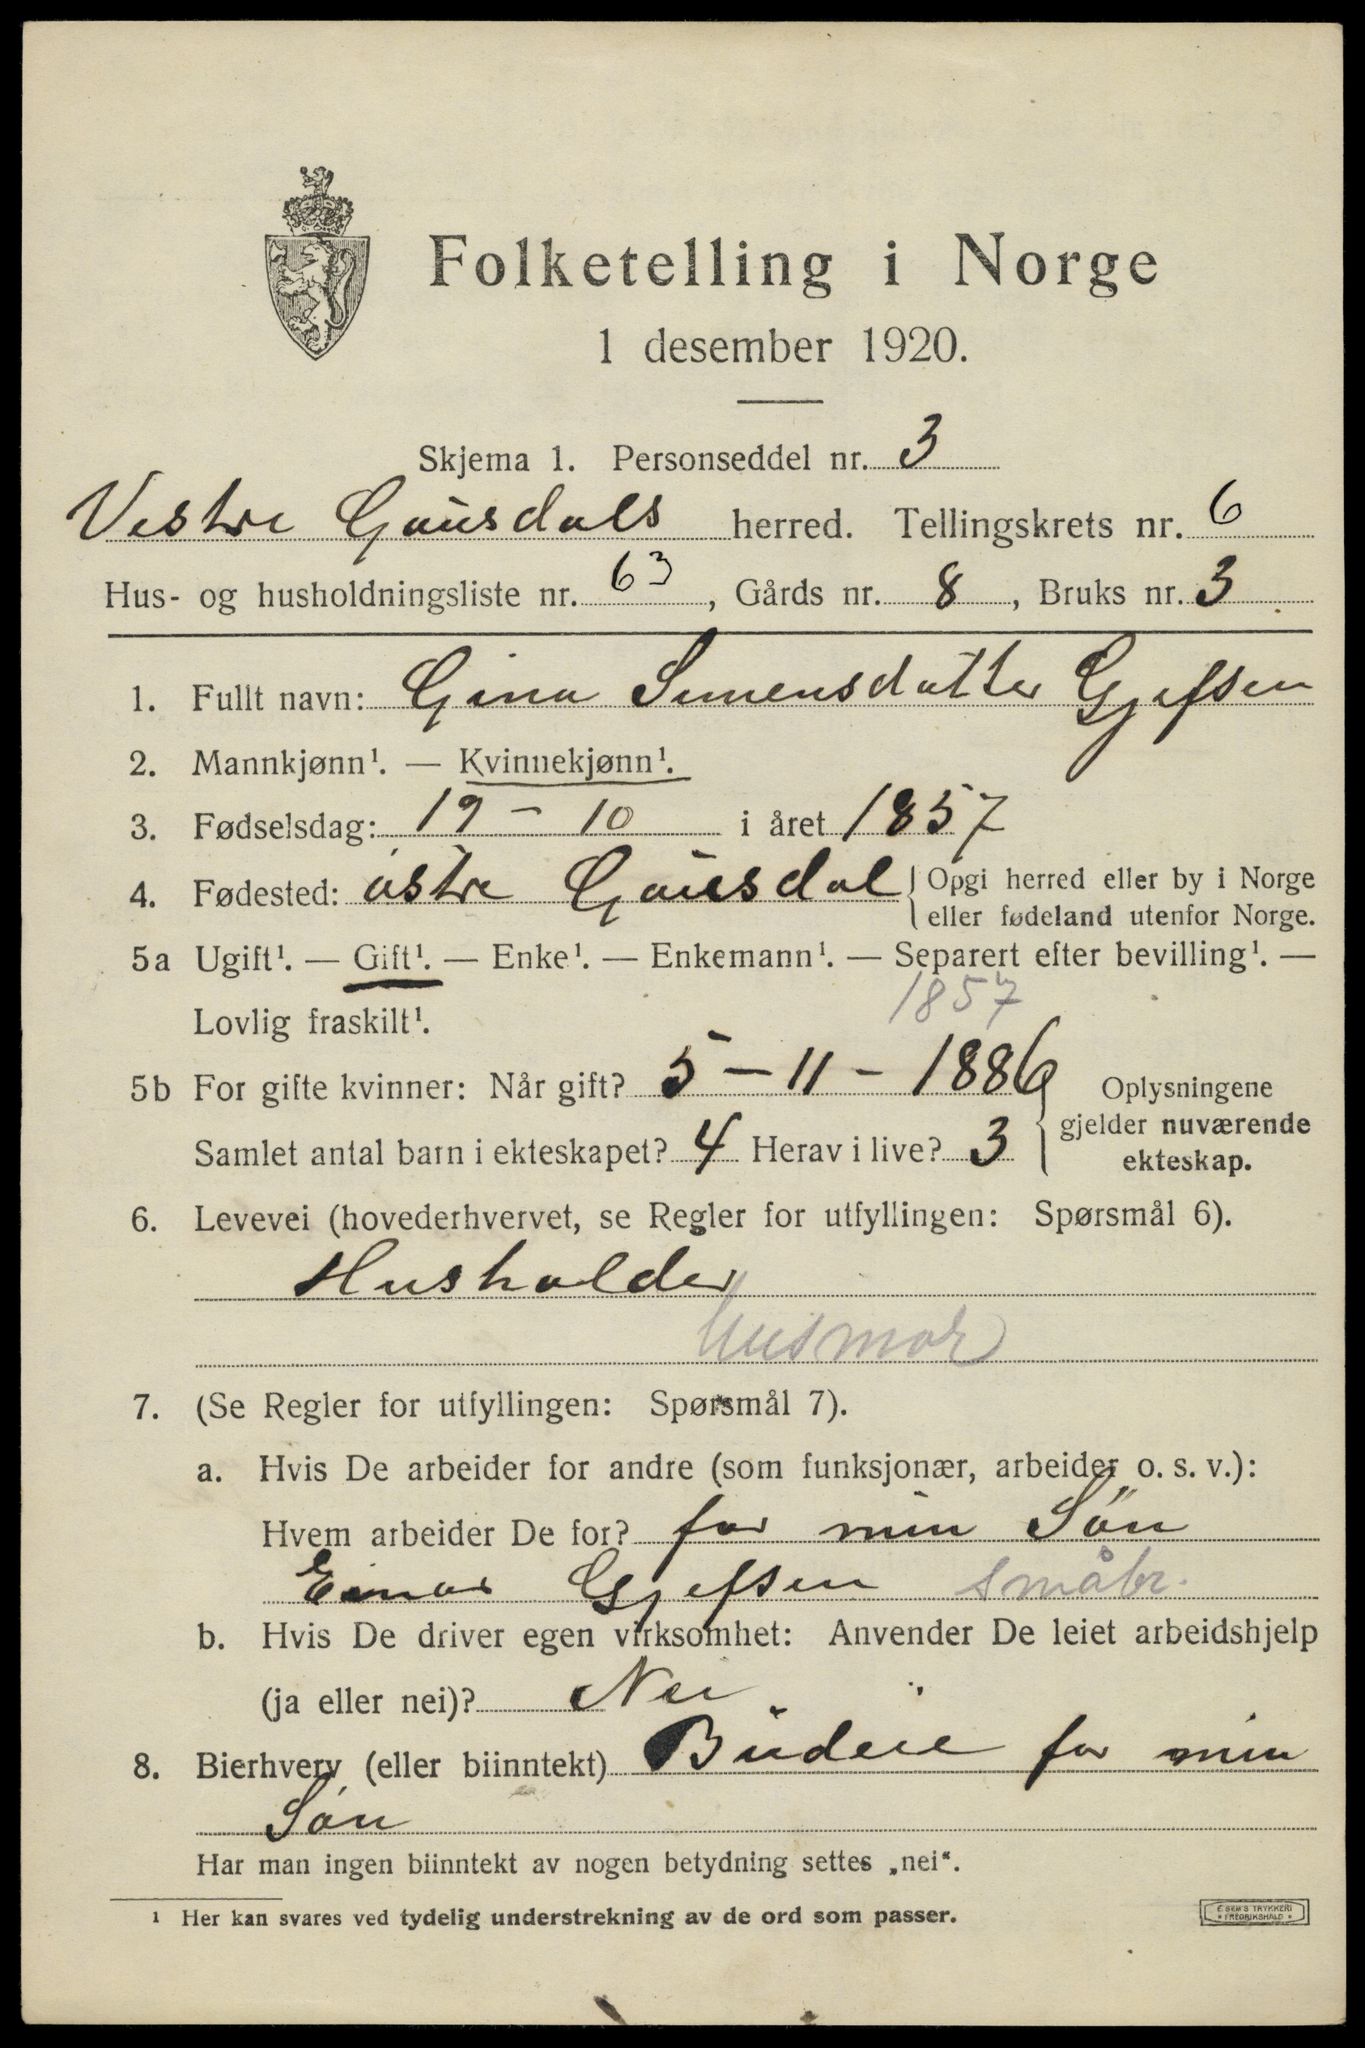 Folketelling i Norge
1 desember 1920.
Skjema 1. Personseddel nr. 3
Vestre Gausdals herred. Tellingskrets nr. 6
Hus- og husholdningsliste nr. 63, Gårds nr. 8, Bruks nr. 3
1. Fullt navn: Gina Simensdatter Gjefsen
2. Mannkjønn¹. — Kvinnekjønn¹.
3. Fødselsdag: 19 - 10 i året 1857
4. Fødested: östre Gausdal { Opgi herred eller by i Norge
eller fødeland utenfor Norge.
5a Ugift¹. — Gift¹. — Enke¹. — Enkemann¹. — Separert efter bevilling¹. —
1857
Lovlig fraskilt¹.
5b For gifte kvinner: Når gift? 5 - 11 - 1886
Samlet antal barn i ekteskapet? 4 Herav i live? 3
{ Oplysningene
gjelder nuværende
ekteskap.
6. Levevei (hovederhvervet, se Regler for utfyllingen: Spørsmål 6).
Husholder
husmor
7. (Se Regler for utfyllingen: Spørsmål 7).
a. Hvis De arbeider for andre (som funksjonær, arbeider o. s. v.):
Hvem arbeider De for? for min Sön
Einar Gjefsen småbr.
b. Hvis De driver egen virksomhet: Anvender De leiet arbeidshjelp
(ja eller nei)? Nei
8. Bierhverv (eller biinntekt) Budeie for min
Sön
Har man ingen biinntekt av nogen betydning settes „nei“.
¹ Her kan svares ved tydelig understrekning av de ord som passer.
E. SEM'S TRYKKERI
* FREDRIKSHALD *